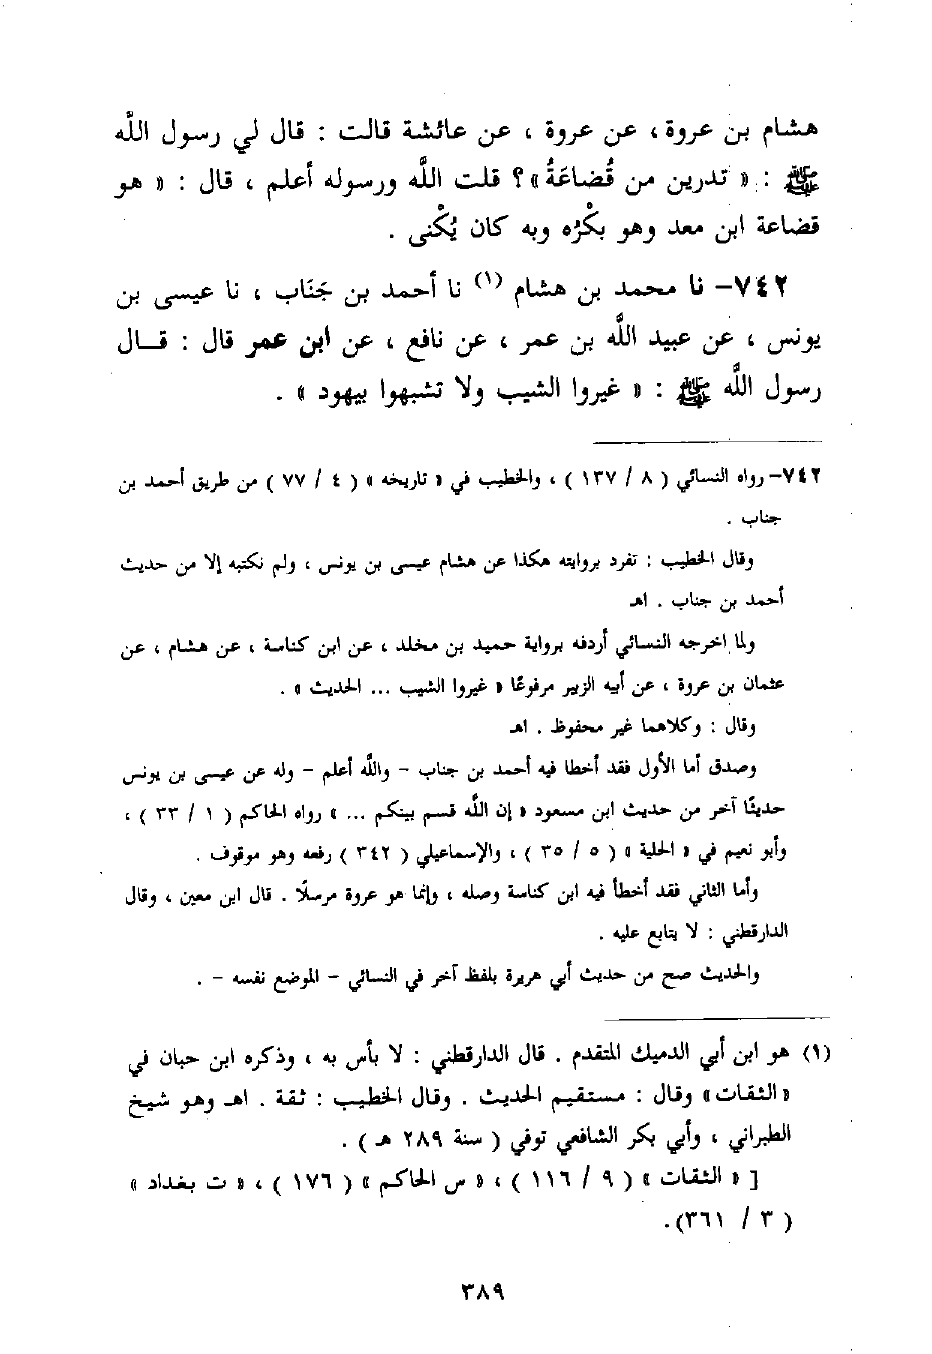 هشام بن عروة ، عن عروة ، عن عائشة قالت : قال لي رسول الله
ﷺ : « تدرين من قُضاعَةُ » ؟ قلت الله ورسوله أعلم ، قال : « هو
قضاعة ابن معد وهو بكْرُه وبه كان يُكْنى .
٧٤٢- نا محمد بن هشام (١) نا أحمد بن جَنَاب ، نا عيسى بن
يونس ، عن عبيد الله بن عمر ، عن نافع ، عن ابن عمر قال : قـــال
رسول الله ﷺ : « غيروا الشيب ولا تشبهوا بيهود » .
٧٤٢- رواه النسائي ( ٨ / ١٣٧ ) ، والخطيب في « تاريخه » ( ٤ / ٧٧ ) من طريق أحمد بن
جناب .
وقال الخطيب : تفرد بروايته هكذا عن هشام عيسى بن يونس ، ولم نكتبه إلا من حديث
أحمد بن جناب . اهـ
ولما اخرجه النسائي أردفه برواية حميد بن مخلد ، عن ابن كناسة ، عن هشام ، عن
عثمان بن عروة ، عن أبيه الزبير مرفوعًا « غيروا الشيب ... الحديث » .
وقال : وكلاهما غير محفوظ . اهـ
وصدق أما الأول فقد أخطا فيه أحمد بن جناب – والله أعلم – وله عن عيسى بن يونس
حديثًا آخر من حديث ابن مسعود « إن الله قسم بينكم ... » رواه الحاكم ( ١ / ٣٣ ) ،
وأبو نعيم في « الحلية » ( ٥ / ٣٥ ) ، والإسماعيلي ( ٣٤٢ ) رفعه وهو موقوف .
وأما الثاني فقد أخطأ فيه ابن كناسة وصله ، وإنما هو عروة مرسلًا . قال ابن معين ، وقال
الدارقطني : لا يتابع عليه .
والحديث صح من حديث أبي هريرة بلفظ آخر في النسائي – الموضع نفسه – .
(١) هو ابن أبي الدميك المتقدم . قال الدارقطني : لا بأس به ، وذكره ابن حبان في
« الثقات » وقال : مستقيم الحديث . وقال الخطيب : ثقة . اهـ وهو شيخ
الطبراني ، وأبي بكر الشافعي توفي ( سنة ٢٨٩ هـ ) .
[ « الثقات » ( ٩ / ١١٦ ) ، « س الحاكم » ( ١٧٦ ) ، « ت بغداد »
( ٣ / ٣٦١).
٣٨٩